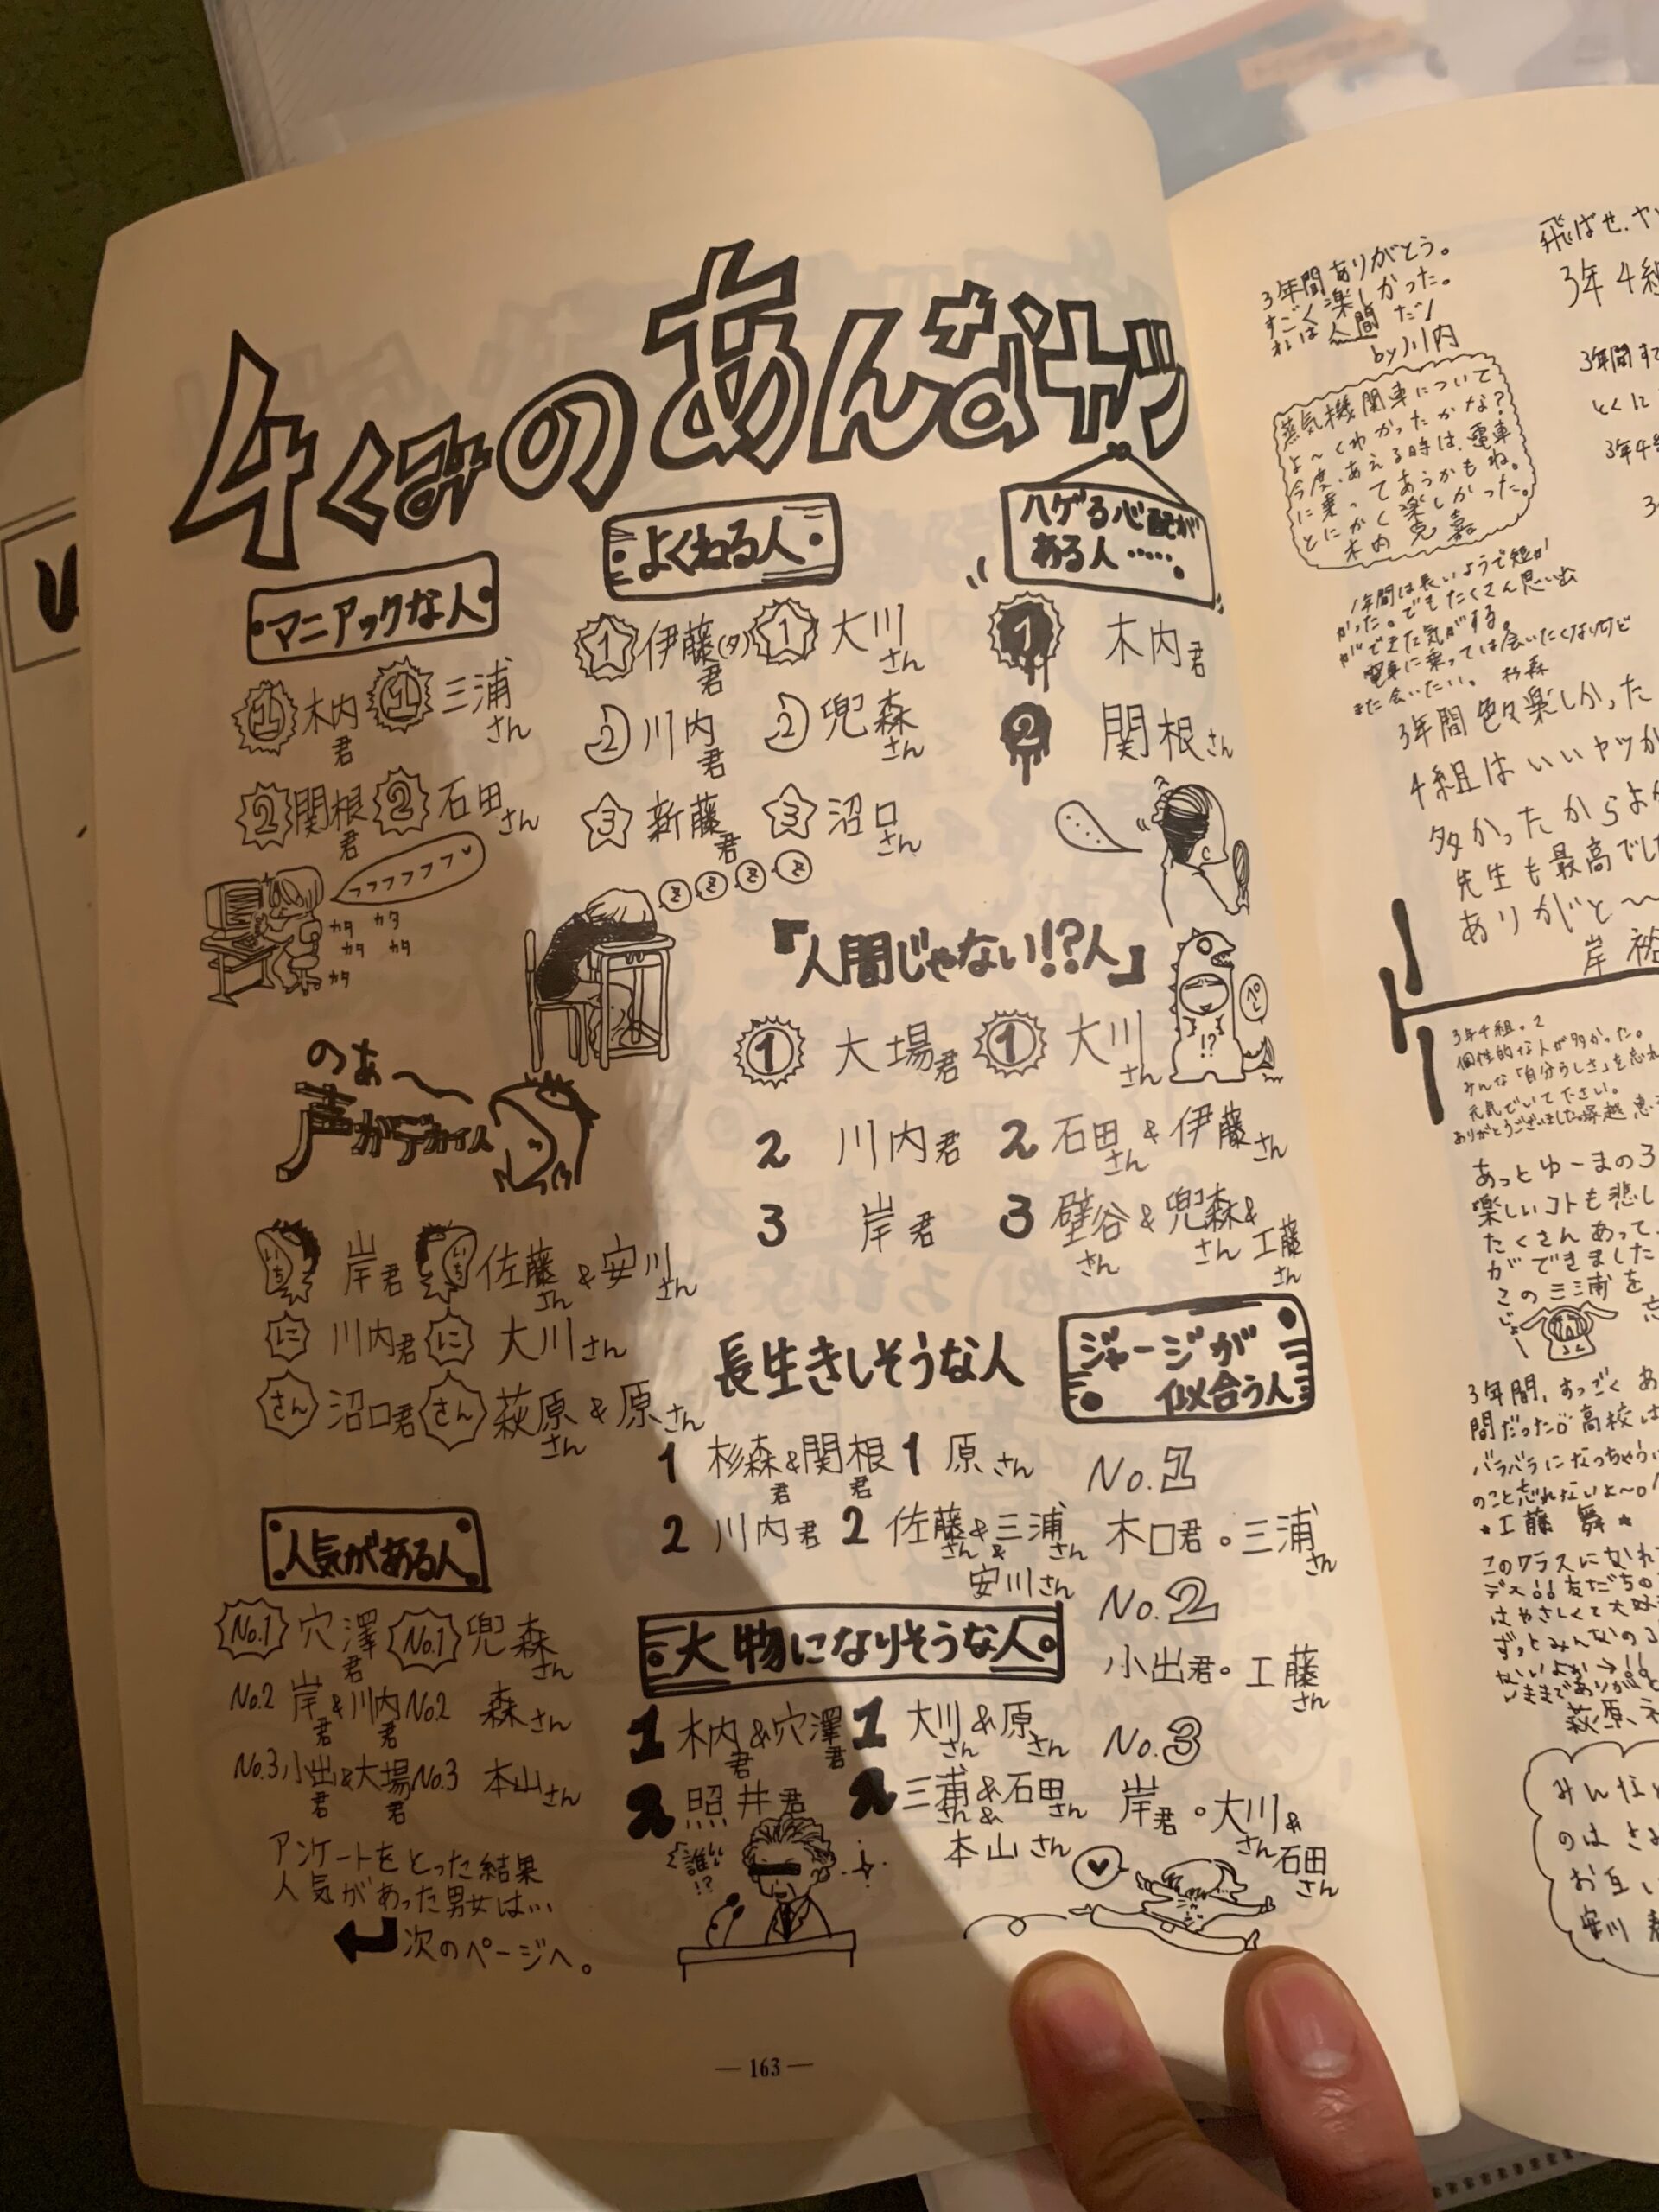 4くみのあんなヤツ
マニアックな人
1 木内君 1 三浦さん
2 関根君 2 石田さん
フフフフフフ
カタ カタ
カタ カタ
カタ
よくねる人
1 伊藤(タ)君 1 大川さん
2 川内君 2 兜森さん
3 新藤君 3 沼口さん
Z Z Z Z
ハゲる心配が
ある人……。
1 木内君
2 関根さん
『人間じゃない!?人』
ペし
!?
1 大場君 1 大川さん
2 川内君 2 石田さん & 伊藤さん
3 岸君 3 壁谷さん & 兜森さん & 工藤さん
のぁ〜
声がデカイ人
いち 岸君 いち 佐藤さん & 安川さん
に 川内君 に 大川さん
さん 沼口君 さん 萩原さん & 原さん
長生きしそうな人
1 杉森 & 関根君君 1 原さん
2 川内君 2 佐藤さん & 三浦さん &
安川さん
ジャージが
似合う人
No.1
木口君。三浦さん
No.2
小出君。工藤さん
No.3
岸君。大川さん &
石田さん
人気がある人
No.1 穴澤君 No.1 兜森さん
No.2 岸君 & 川内君 No.2 森さん
No.3 小出君 & 大場君 No.3 本山さん
アンケートをとった結果
人気があった男女は…
次のページへ。
大物になりそうな人。
1 木内君 & 穴澤君 1 大川さん & 原さん
2 照井君 2 三浦さん & 石田さん &
本山さん
誰
!?
— 163 —
3年間ありがとう。
すごく楽しかった。
オレは人間だ!
by 川内
蒸気機関車について
よ〜くわかったかな?
今度、あえる時は、電車
に乗ってあうかもね。
とにかく楽しかった。
木内 克嘉
1年間は長いようで短か
かった。でもたくさん思い出
ができた気がする。
電車に乗っては会いたくないけど
また会いたい。 杉森
飛ばせ、ヤ
3年4組
3年間す
とくに
3年4組
3年間色々楽しかった
4組はいいヤツが
多かったからよ
先生も最高でし
ありがと〜
岸 裕
3年4組。2
個性的な人が多かった。
みんな「自分らしさ」を忘れ
元気でいて下さい。
ありがとうございました
あっとゆーまの3
楽しいコトも悲し
たくさんあって、
ができました
この三浦を
忘
3年間、すっごくあ
間だった!!高校は
バラバラになっちゃう
のこと忘れないよ〜。
★工藤 舞★
このクラスになれて
デス!!友だちの
はやさしくて大好
ずっとみんなのコ
ないよぉ→!!
いままでありが
萩原
みんな
のは さ
お互い
安川